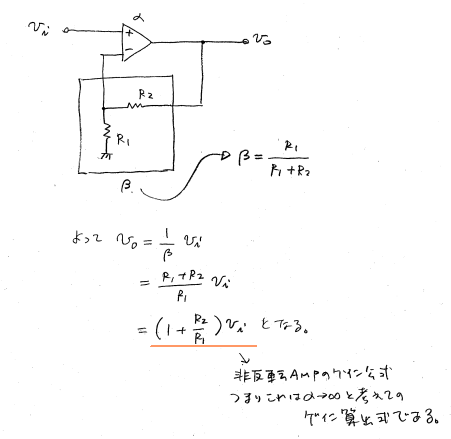 α
vi
+
−
vo
R2
R1
β
β = R1 / (R1 + R2)
よって vo = (1/β) vi
= ((R1 + R2) / R1) vi
= (1 + R2/R1) vi となる。
非反転AMPのゲイン公式
つまりこれはα→∞と考えての
ゲイン算出式である。